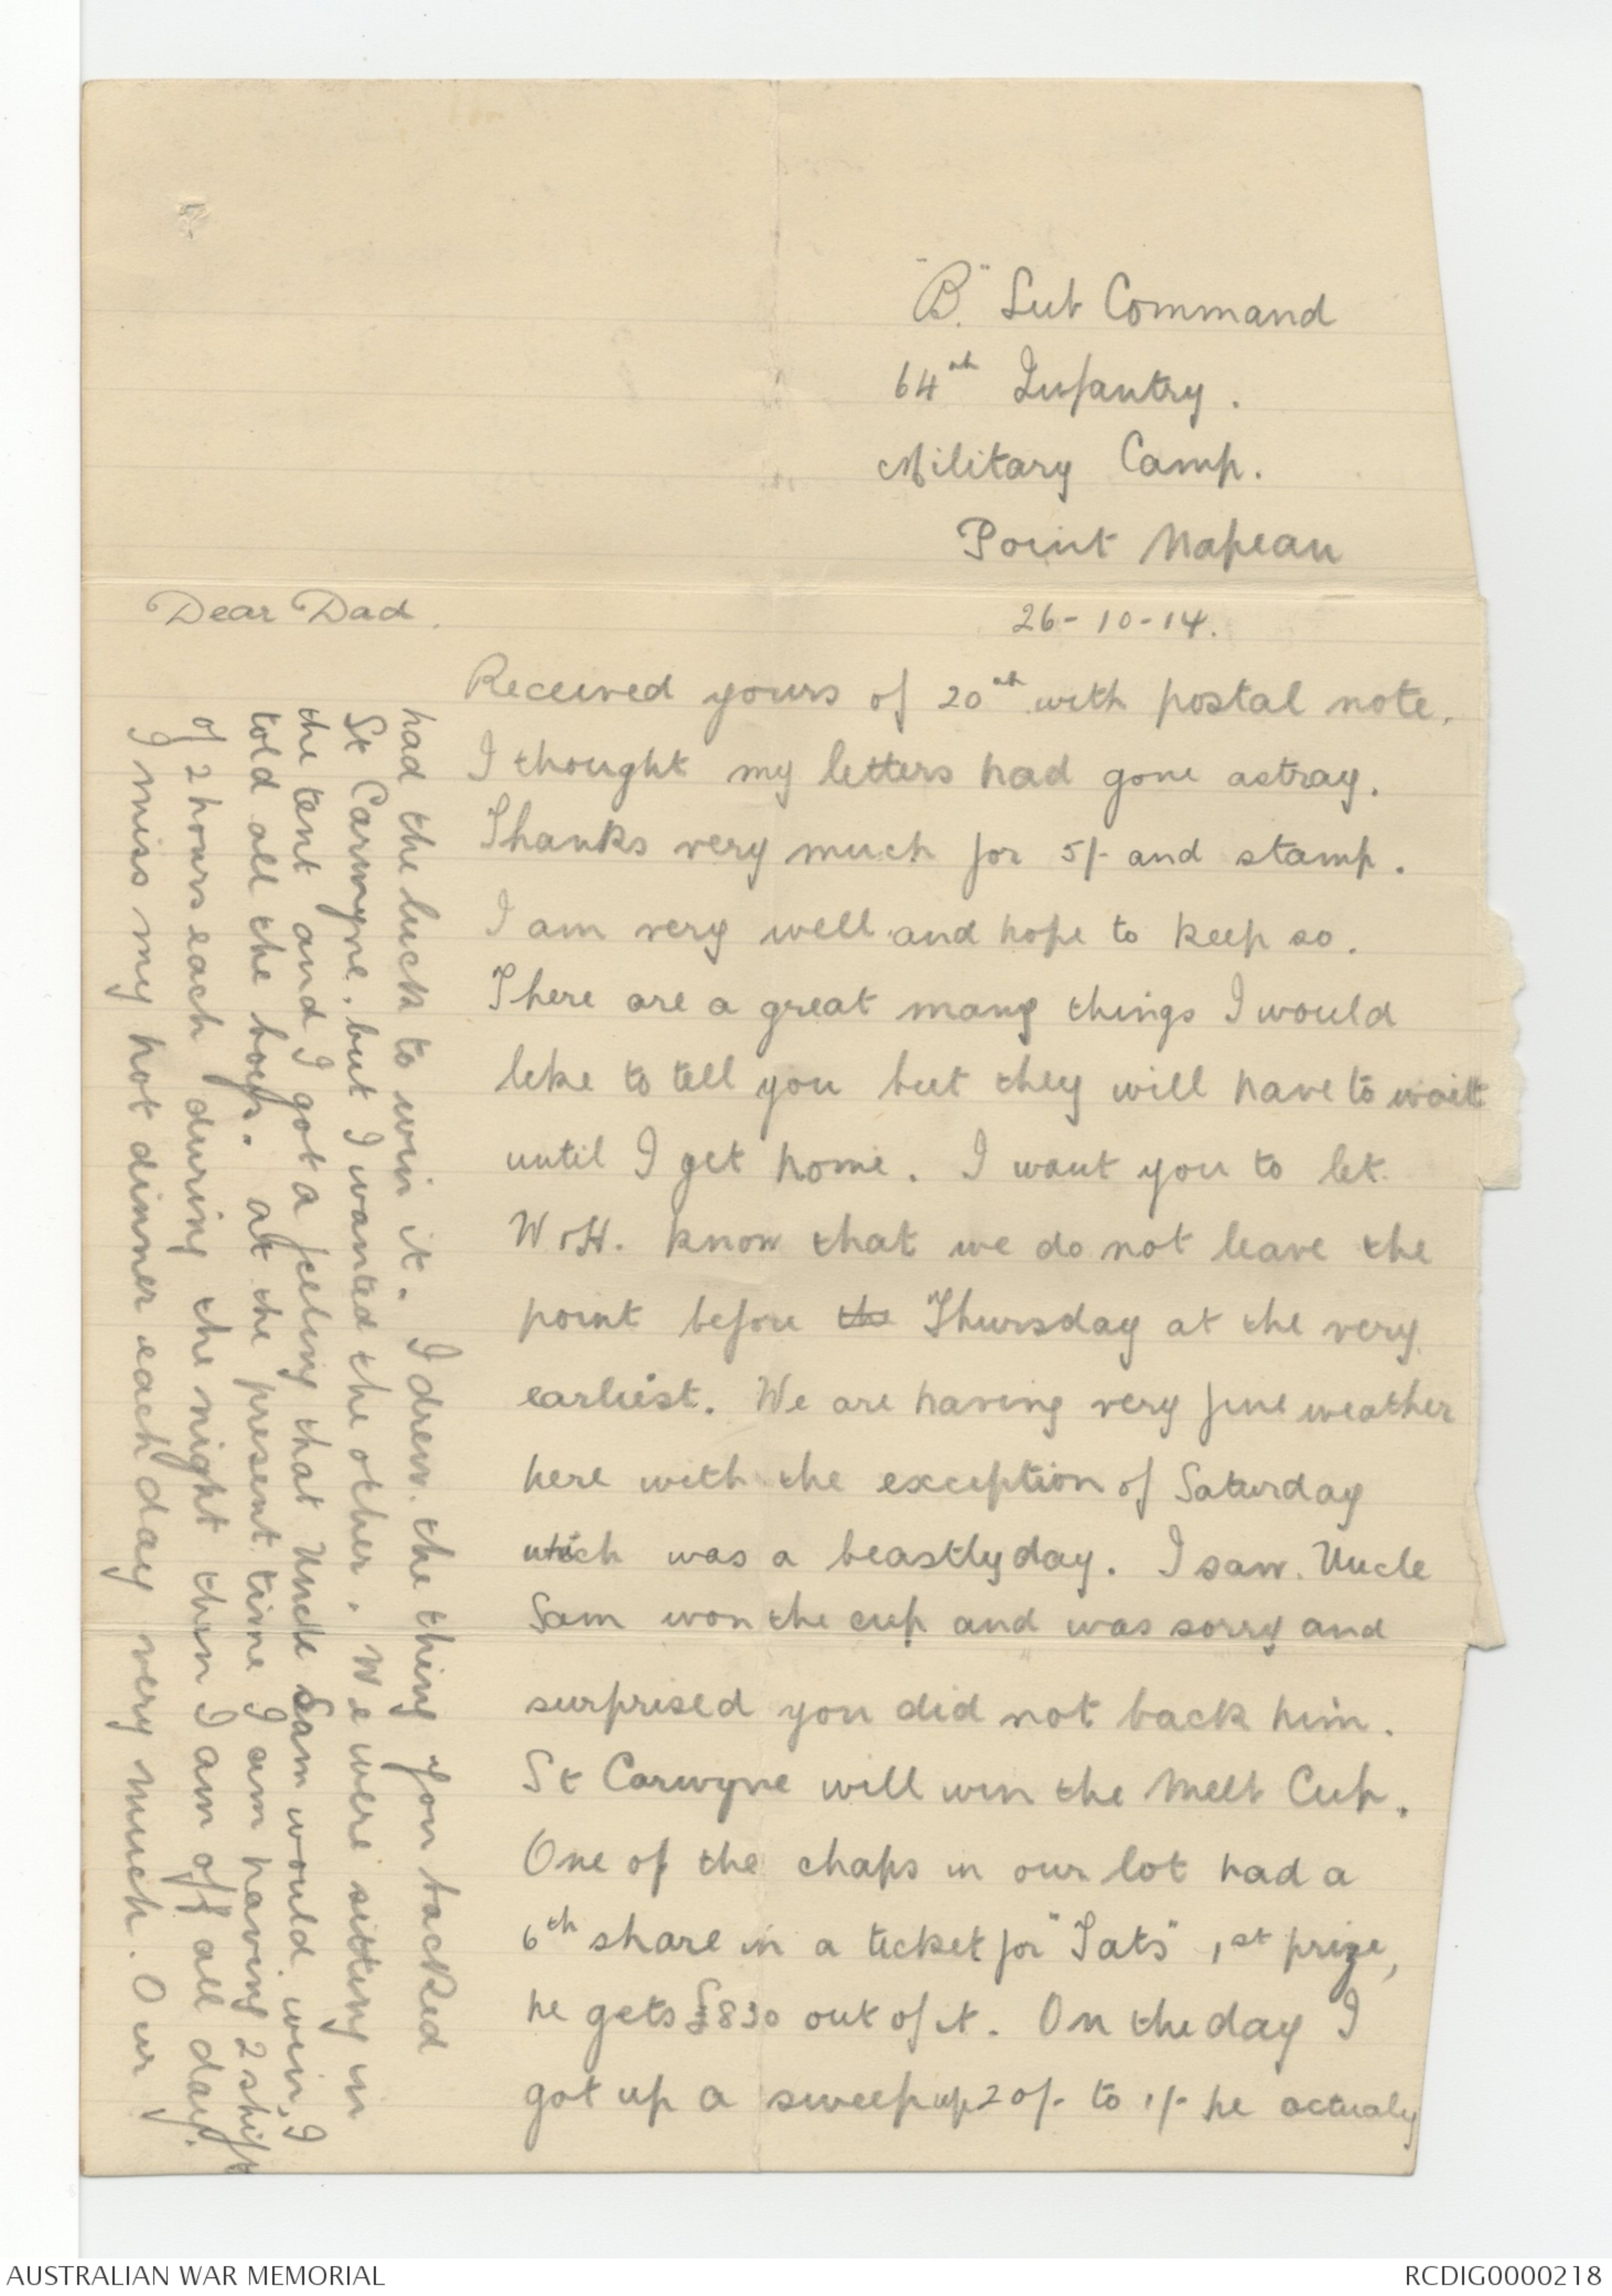 "B." Sub Command
64th Infantry.
Military Camp.
Point Napean
26-10-14.
Dear Dad.
Received yours of 20th with postal note.
I thought my letters had gone astray.
Thanks very much for 5/- and stamp.
I am very well and hope to keep so.
There are a great many things I would
like to tell you but they will have to wait
until I get home. I want you to let
W & H. know that we do not leave the
point before the Thursday at the very
earliest. We are having very fine weather
here with the exception of Saturday
which was a beastly day. I saw Uncle
Sam won the cup and was sorry and
surprised you did not back him.
St Carwyne will win the Melb Cup.
One of the chaps in our lot had a
6th share in a ticket for "Tats" 1st prize,
he gets £830 out of it. On the day I
got up a sweep up 20/- to 1/- he actualy
had the luck to win it. I drew the thing you backed
St Carwyne, but I wanted the other. We were sitting in
the tent and I got a feeling that Uncle Sam would win, I
told all the boys. at the present time I am having 2 shifts
of 2 hours each during the night then I am off all day.
I miss my hot dinner each day very much. Our
AUSTRALIAN WAR MEMORIAL
RCDIG0000218